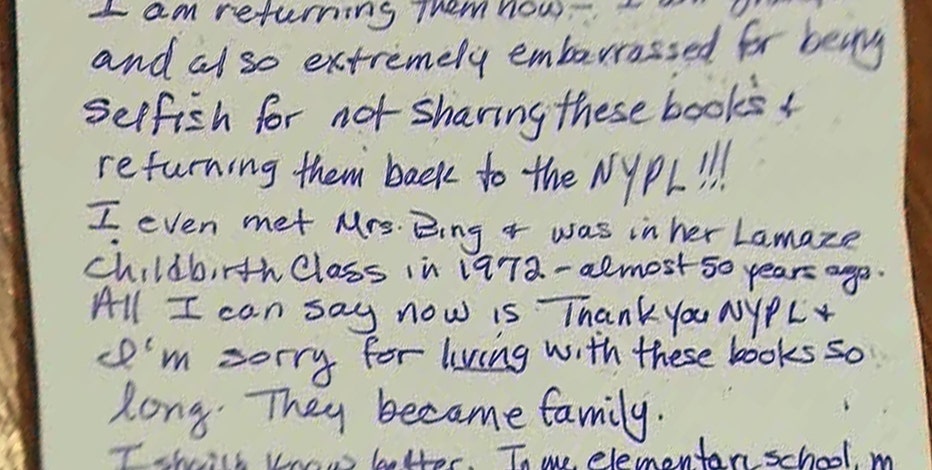 I am returning them now - I am
and also extremely embarrassed for being
selfish for not sharing these books &
returning them back to the NYPL!!!
I even met Mrs. Bing & was in her Lamaze
Childbirth Class in 1972 - almost 50 years ago.
All I can say now is Thank you NYPL &
I'm sorry for living with these books so
long. They became family.
I should know better. In my elementary school, m